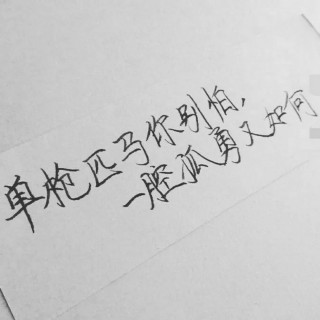 单枪匹马你别怕,
一腔孤勇又如何